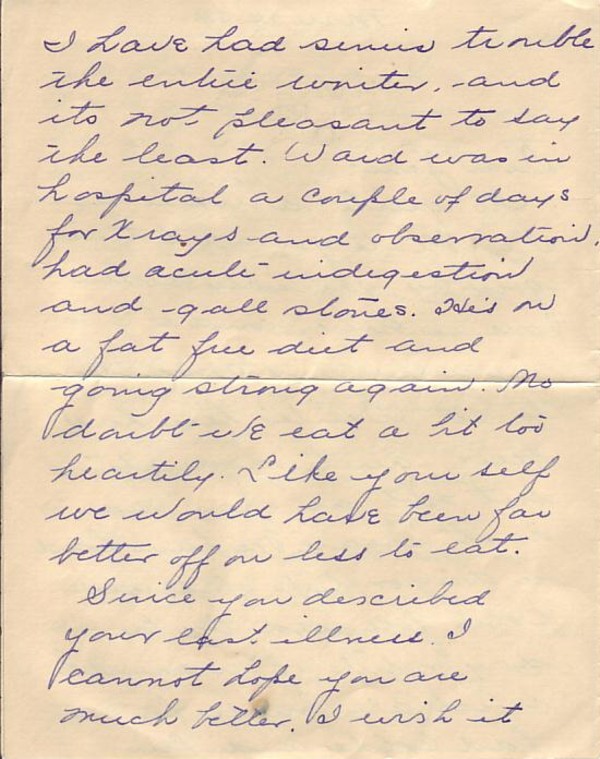 I have had sinus trouble
the entire winter, and
its not pleasant to say
the least. Ward was in
hospital a couple of days
for Xrays and observation,
had acute indigestion
and gall stones. He's on
a fat free diet and
going strong again. No
doubt we eat a bit too
heartily. Like your self
we would have been far
better off on less to eat.
Since you described
your last illness. I
cannot hope you are
much better. I wish it